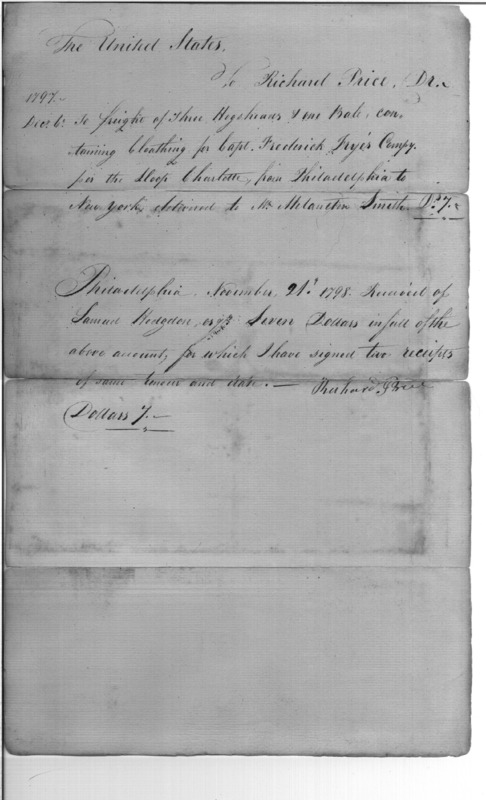 The United States,
To Richard Price, Dr.
1797.
Decr. 6. To freight of Three Hogsheads & one Bale, con-
taining Cloathing for Capt. Frederick Frye's Compy.
per the Sloop Charlotte, from Philadelphia to
New York, delivered to Mr. Melancton Smith Ds. 7.
Philadelphia November 21st 1798. Received of
Samuel Hodgdon, Seven Dollars in full of the
above account, for which I have signed two receipts
of same tenor and date.— Richard Price
Dollars 7.—